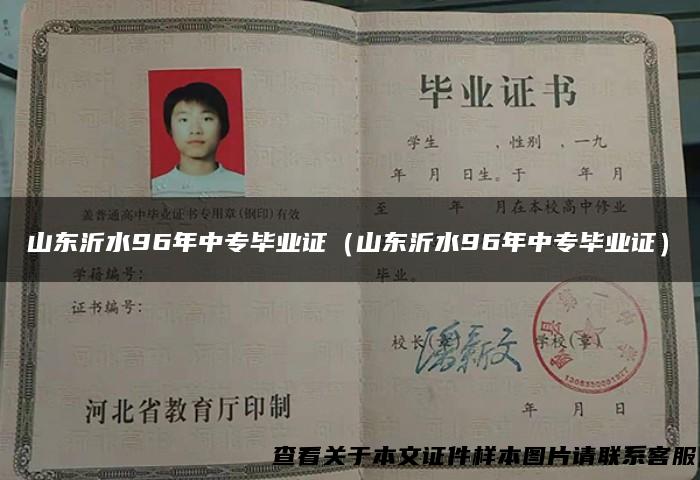 毕业证书
学生 ,性别 ,一九
年 月 日生。于 年 月
至 年 月在本校高中修业
盖普通高中毕业证书专用章(钢印)有效
山东沂水96年中专毕业证（山东沂水96年中专毕业证）
学籍编号:
毕业。
证书编号:
校长(章) 学校(章)
河北省教育厅印制
年 月 日
查看关于本文证件样本图片请联系客服